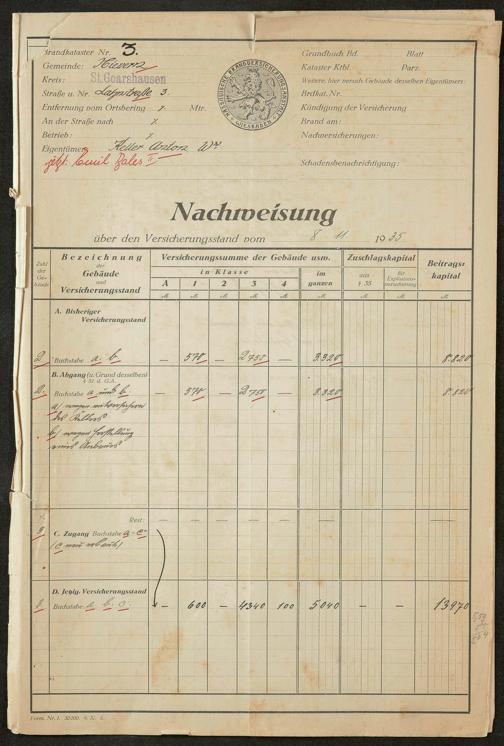 Brandkataster Nr. 3.
Gemeinde: Nievern
Kreis: St. Goarshausen
Straße u. Nr. Lahnstraße 3.
Entfernung vom Ortsbering Mtr.
An der Straße nach
Betrieb:
Eigentümer: Keller Anton Wwe
jetzt: Emil Zales II
NASSAUISCHE BRANDVERSICHERUNGSANSTALT
WIESBADEN
Grundbuch Bd. Blatt
Kataster Ktbl. Parz.
Weitere, hier versich. Gebäude desselben Eigentümers:
Brdkat.Nr.
Kündigung der Versicherung
Brand am:
Nachversicherungen:
Schadensbenachrichtigung:
Nachweisung
über den Versicherungsstand vom 8 11 1935
Zahl der Gebäude
Bezeichnung der Gebäude und Versicherungsstand
Versicherungssumme der Gebäude usw.
in Klasse
A 1 2 3 4
im ganzen
Zuschlagskapital
aus § 35
für Explosionsversicherung
Beitragskapital
A. Bisheriger Versicherungsstand
2 Buchstabe a. b. — 570 — 2750 — 3320 — — 8.820
B. Abgang (u. Grund desselben) § 31 d. G.A.
2. Buchstabe a und b — 570 — 2750 — 3320 — — 8.820
a) wegen
des Kellers
b) wegen
eines Anbaues
Rest: — — — — — — — — —
3 C. Zugang Buchstabe a – c
(c neu erbaut)
D. Jetzig. Versicherungsstand
3 Buchstabe a. b. c. — 600 — 4340 100 5040 — — 13970
Form. Nr. 1.